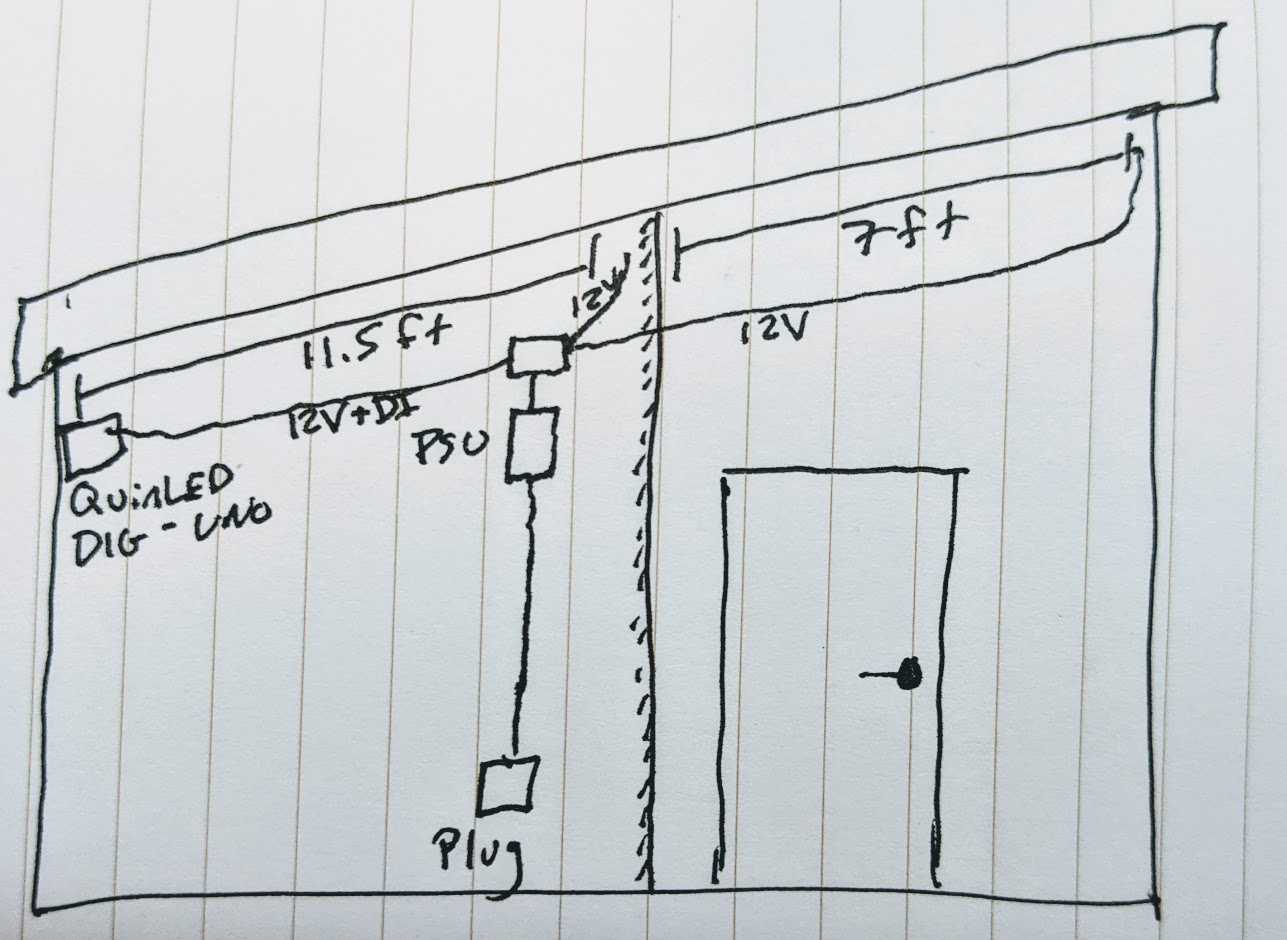 7ft
12V
11.5 ft
12V
12V+DI
PSU
QuinLED
DIG-UNO
Plug